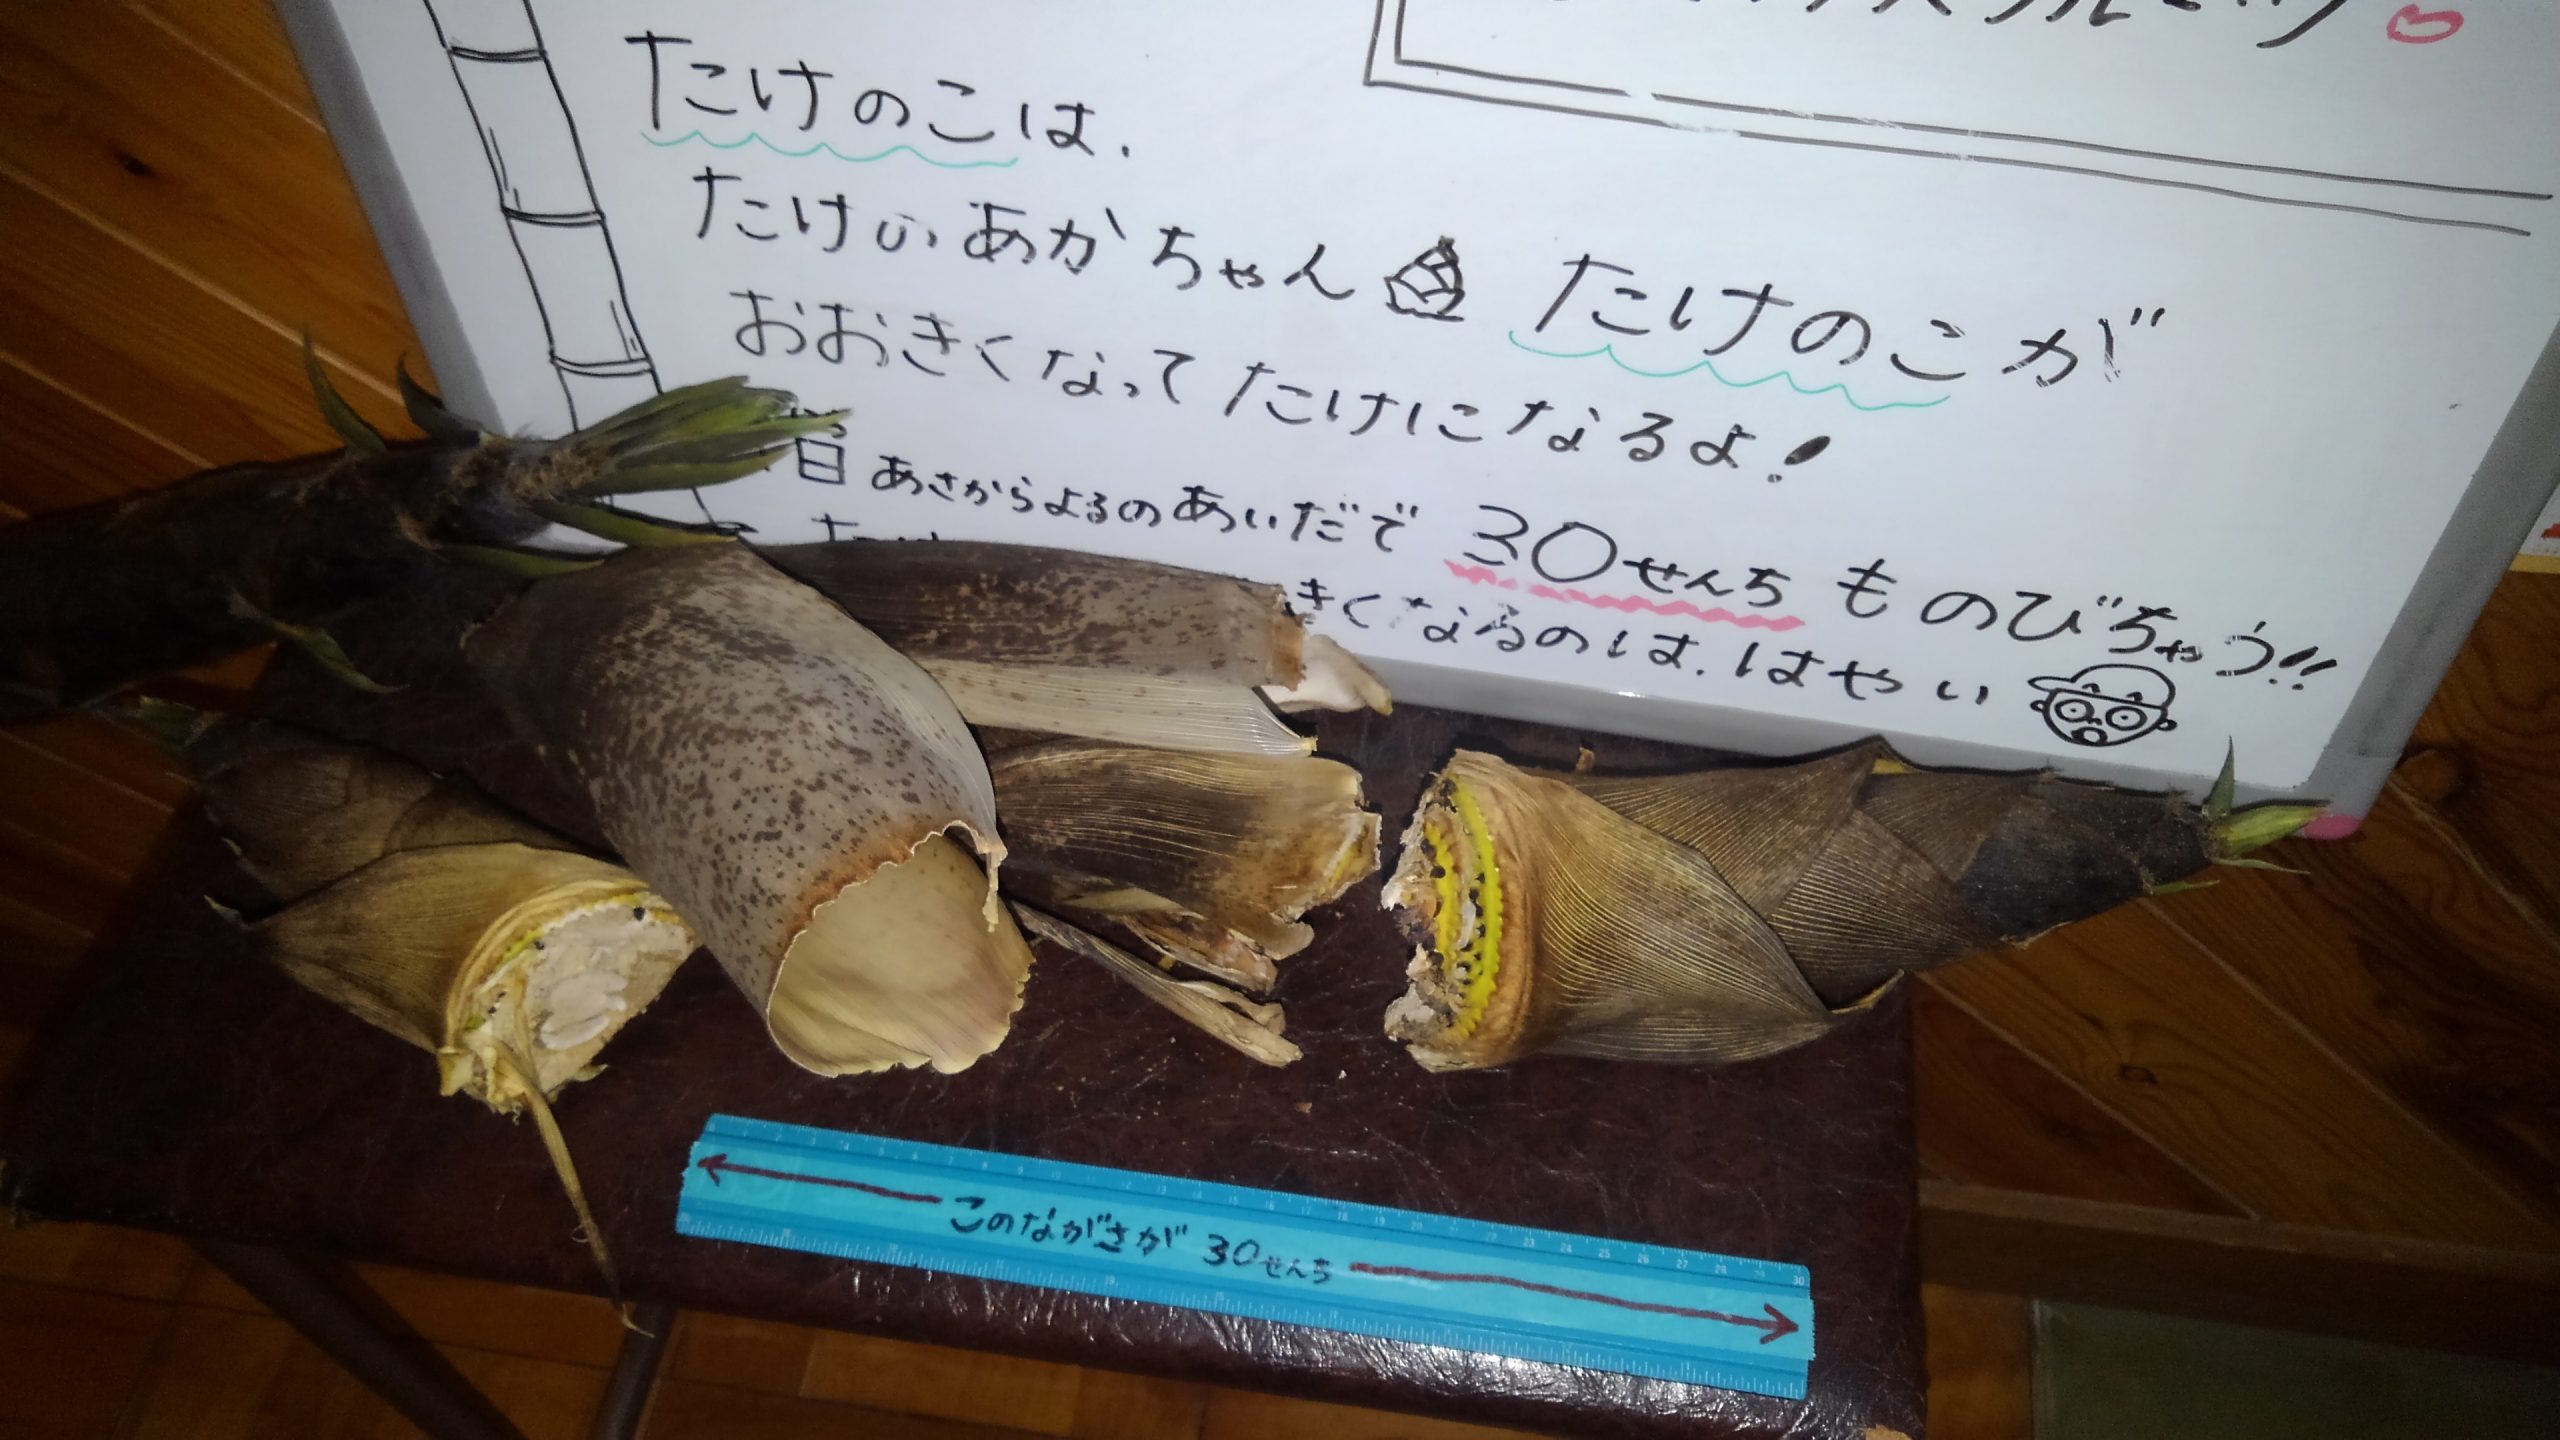 たけのこは、
たけのあかちゃん たけのこが
おおきくなって たけになるよ!
日 あさからよるのあいだで 30せんち ものびちゃう!!
きくなるのは、はやい
このながさが 30せんち